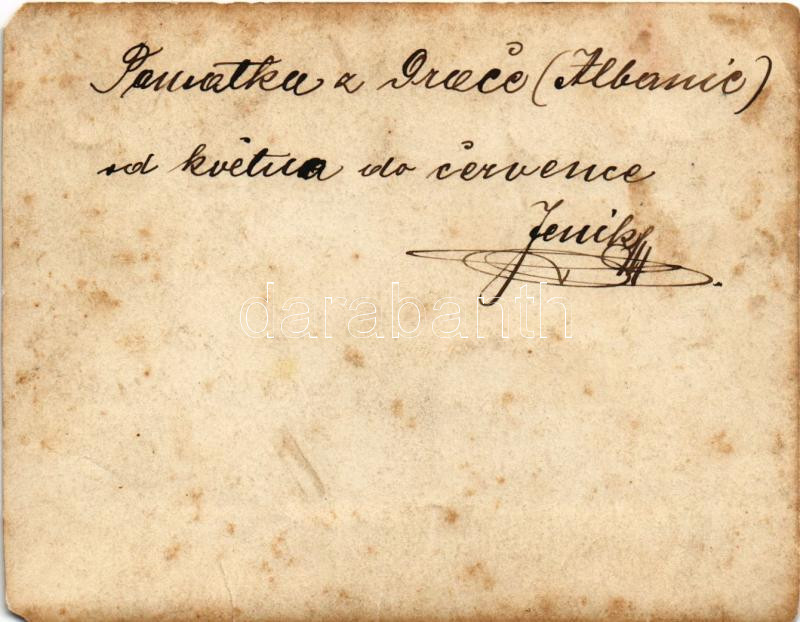 Pamatka z Drače (Albanie)
od května do července
Jeník
darabanth